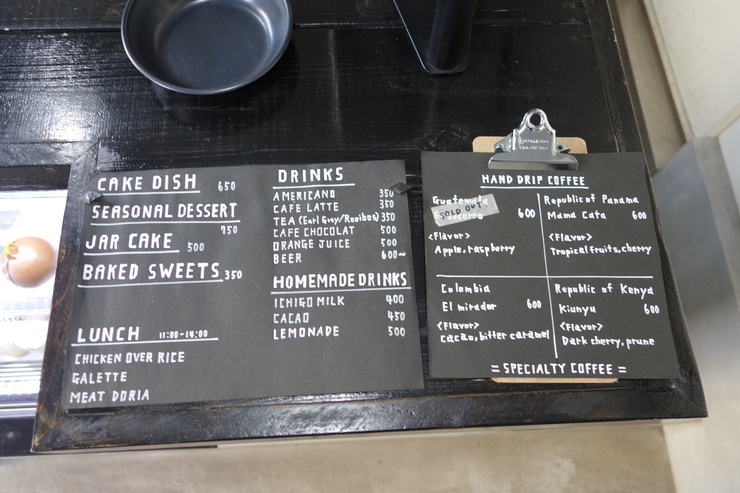 CAKE DISH 650
SEASONAL DESSERT
750
JAR CAKE 500
BAKED SWEETS 350
LUNCH 11:00-14:00
CHICKEN OVER RICE
GALETTE
MEAT DORIA
DRINKS
AMERICANO 350
CAFE LATTE 350
TEA (Earl Grey/Rooibos) 350
CAFE CHOCOLAT 500
ORANGE JUICE 500
BEER 600~
HOMEMADE DRINKS
ICHIGO MILK 400
CACAO 450
LEMONADE 500
HAND DRIP COFFEE
Guatemala
SOLD OUT
600
<Flavor>
Apple, raspberry
Republic of Panama
Mama Cata 600
<Flavor>
Tropical fruits, cherry
Colombia
El mirador 600
<Flavor>
cacao, bitter caramel
Republic of Kenya
Kiunyu 600
<Flavor>
Dark cherry, prune
= SPECIALTY COFFEE =